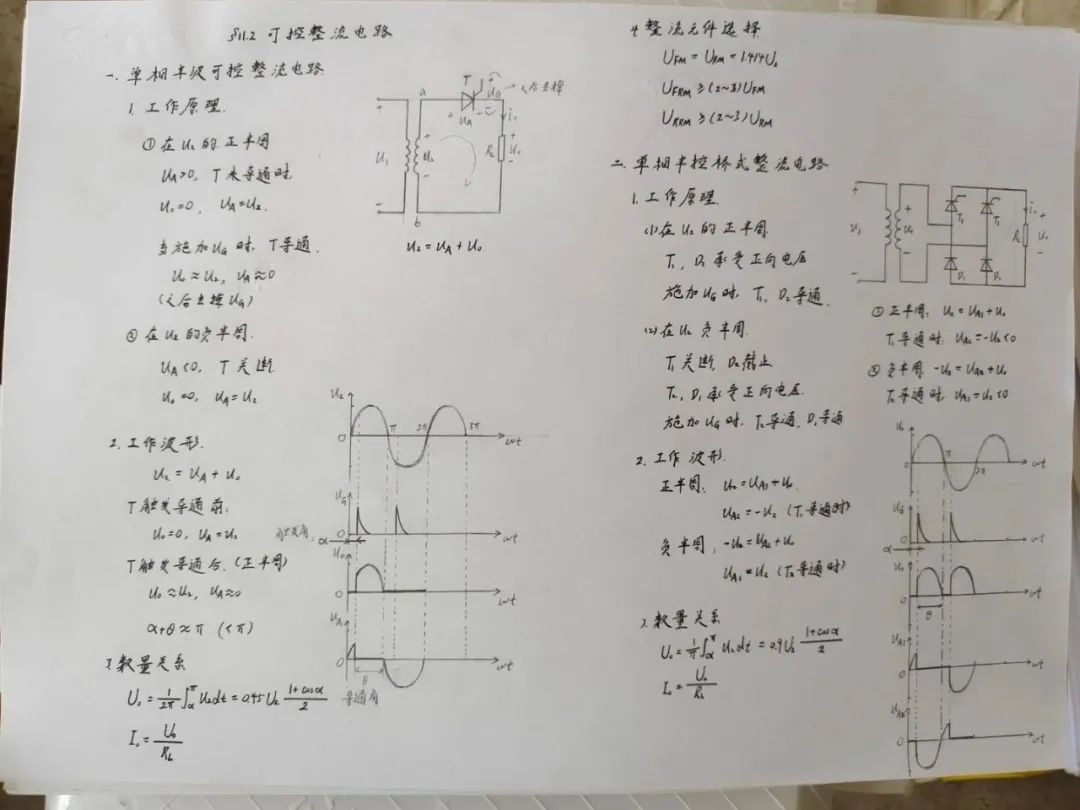 §11.2 可控整流电路
一. 单相半波可控整流电路
1. 工作原理
① 在 U₂ 的正半周
U_A>0, T 未导通时.
U₀=0, U_A=U₂.
当施加 U_G 时, T 导通.
U₀≈U₂, U_A≈0
(之后去掉 U_G)
② 在 U₂ 的负半周.
U_A<0, T 关断
U₀=0, U_A=U₂
T
U_G → 之后去掉
a
U_A
i₀
U₁
U₂
R_L
U₀
b
U₂ = U_A + U₀
2. 工作波形.
U₂ = U_A + U₀
T 触发导通前:
U₀=0, U_A=U₂
T 触发导通后. (正半周)
U₀≈U₂, U_A≈0
α+θ≈π (<π)
U₂
0
π
2π
3π
ωt
U_G
0
ωt
触发角
α
U₀
0
ωt
U_A
0
ωt
θ
导通角
3. 数量关系
U₀ = 1/2π ∫_α^π U₂dt = 0.45 U₂ (1+cosα)/2
I₀ = U₀/R_L
4. 整流元件选择
U_FM = U_RM = 1.414U₂
U_FRM ≥ (2~3)U_FM
U_RRM ≥ (2~3)U_RM
二. 单相半控桥式整流电路
1. 工作原理.
(1) 在 U₂ 的正半周
T₁, D₂ 承受正向电压
施加 U_G 时, T₁, D₂ 导通.
(2) 在 U₂ 负半周.
T₁ 关断, D₂ 截止
T₂, D₁ 承受正向电压.
施加 U_G 时. T₂导通, D₁导通
U₁
T₁
T₂
D₁
D₂
i₀
R_L
U₀
① 正半周: U₂ = U_A1 + U₀
T₁导通时. U_A2 = -U₂ < 0
② 负半周: -U₂ = U_A2 + U₀
T₂导通时, U_A1 = U₂ < 0
2. 工作波形.
正半周: U₂ = U_A1 + U₀.
U_A2 = -U₂ (T₁导通时)
负半周: -U₂ = U_A2 + U₀
U_A1 = U₂ (T₂导通时)
3. 数量关系
U₀ = 1/π ∫_α^π U₂dt = 0.9U₂ (1+cosα)/2
I₀ = U₀/R_L
0
π
2π
ωt
U_G
0
ωt
α
U₀
0
ωt
θ
U_A1
0
ωt
U_A2
0
ωt